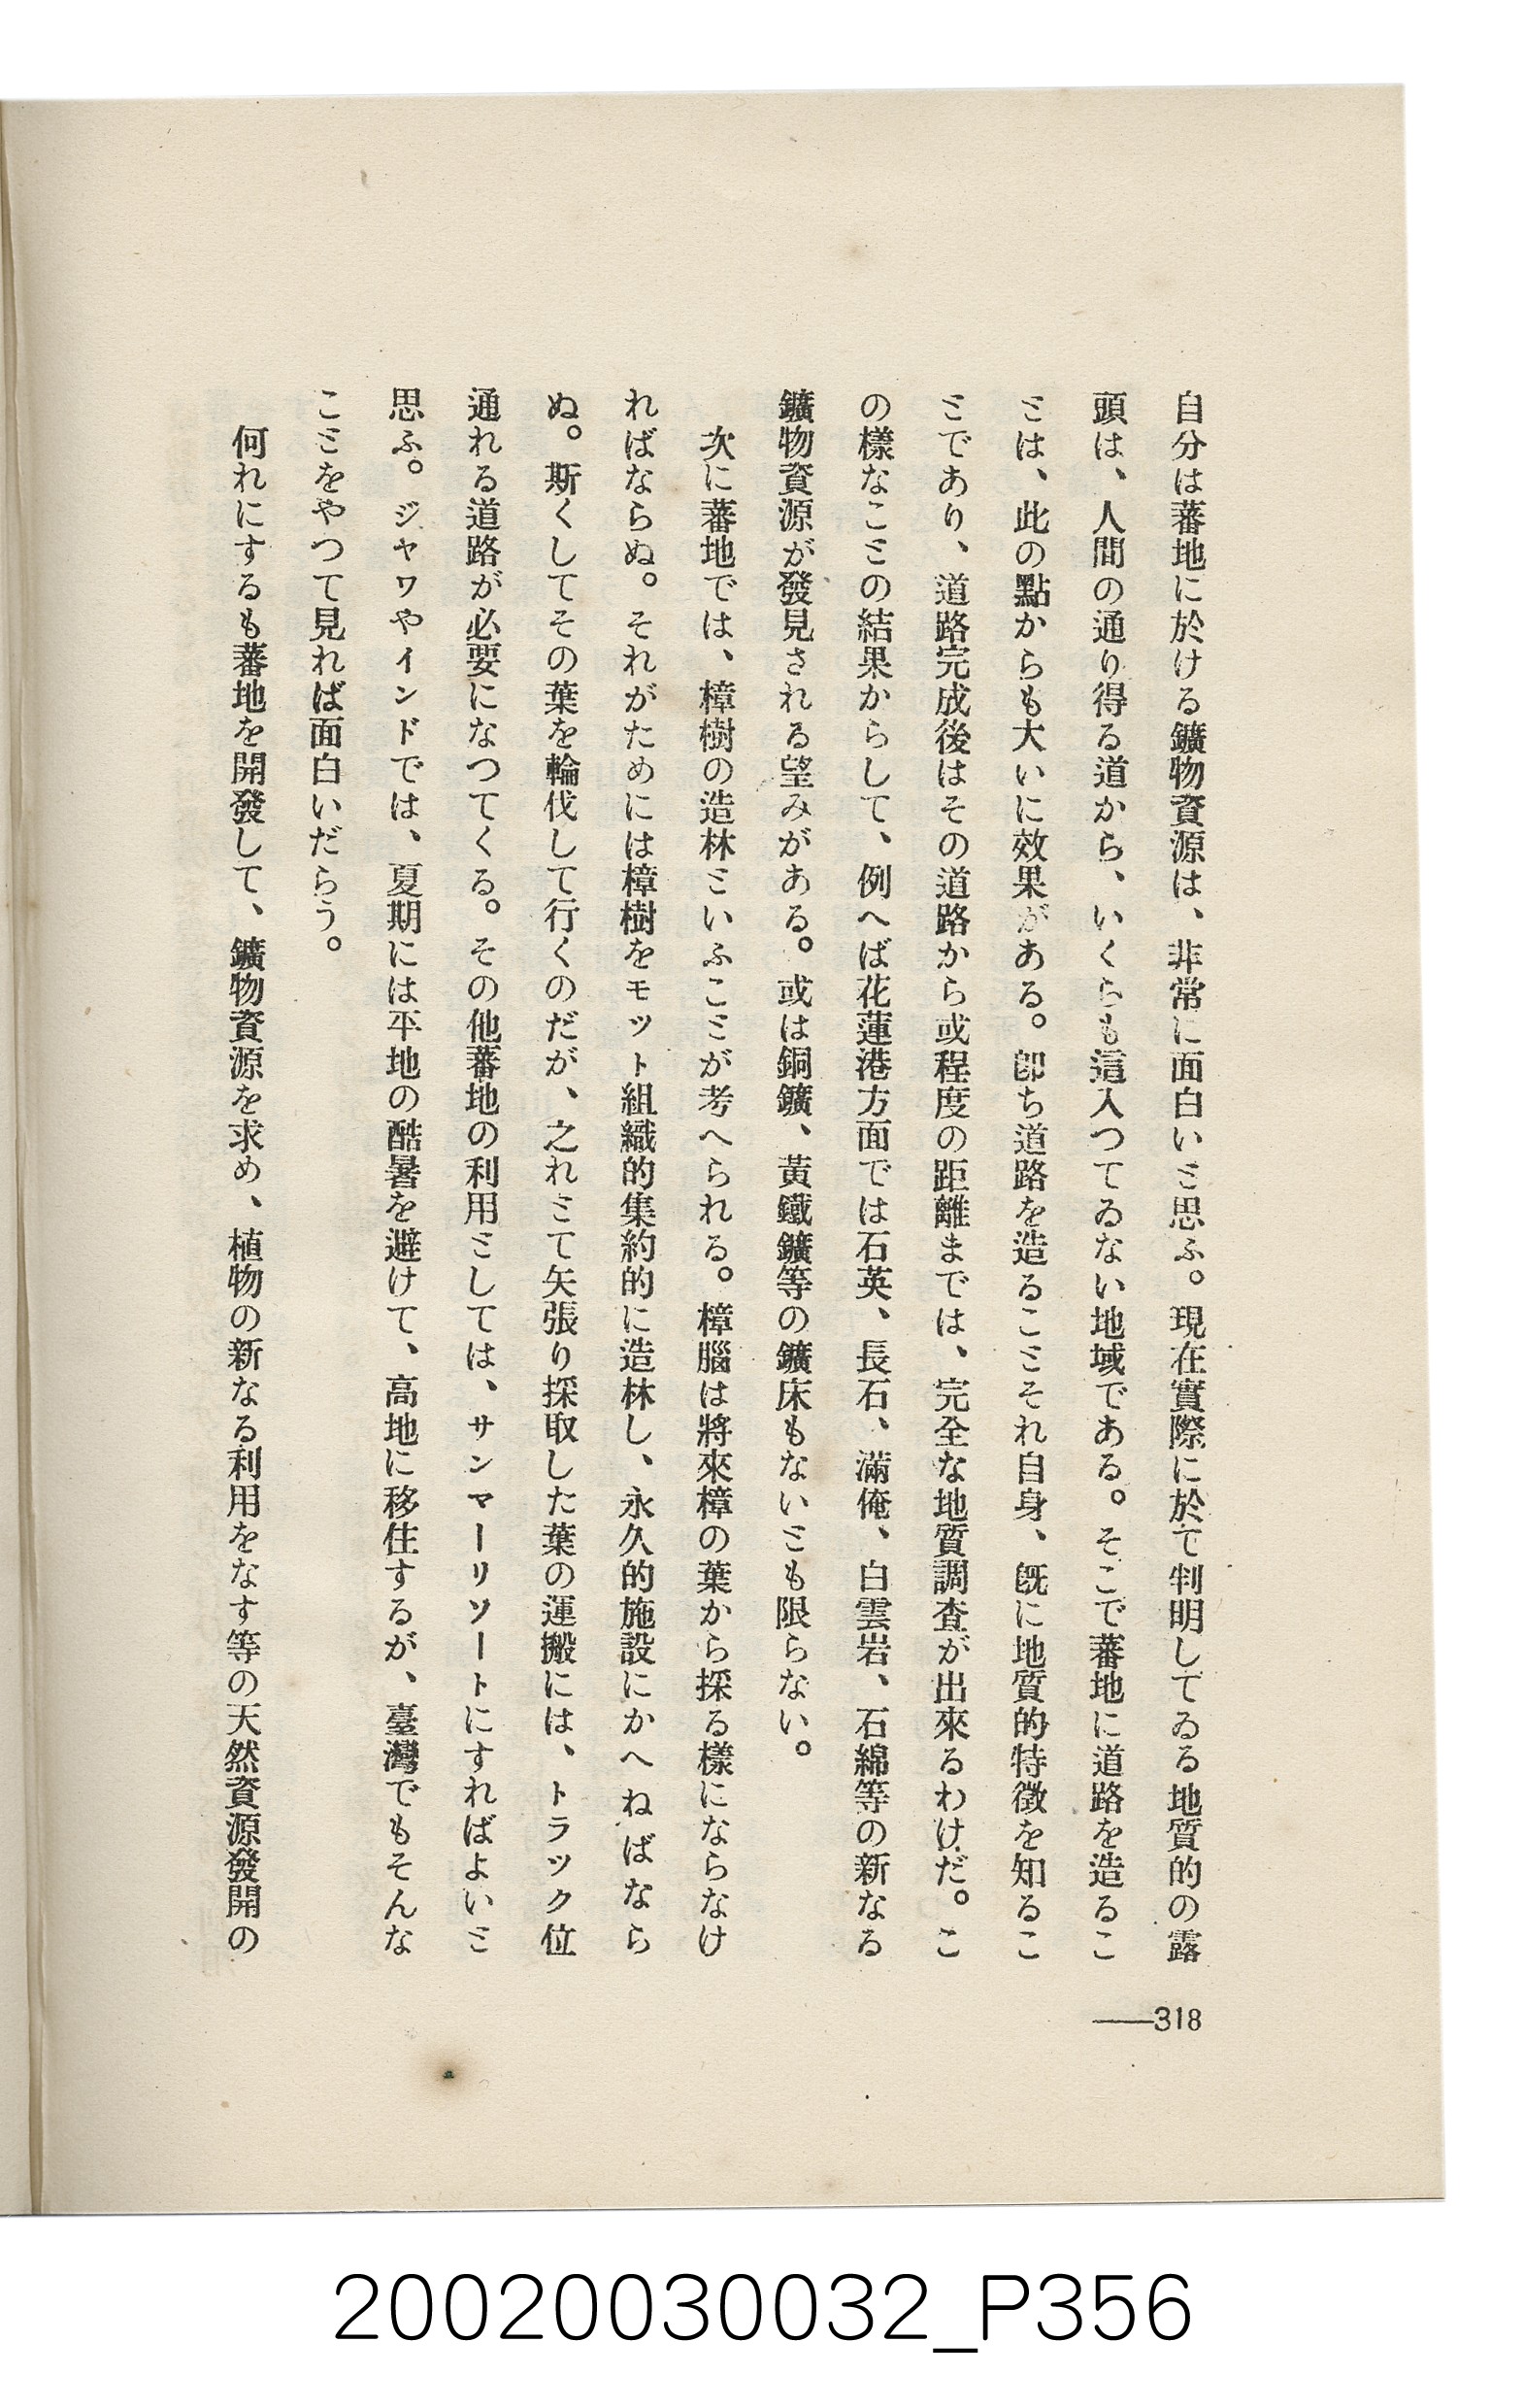 自分は蕃地に於ける鑛物資源は、非常に面白いと思ふ。現在實際に於て判明してゐる地質的の露
頭は、人間の通り得る道から、いくらも這入つてゐない地域である。そこで蕃地に道路を造るこ
とは、此の點からも大いに效果がある。卽ち道路を造ることそれ自身、旣に地質的特徵を知るこ
とであり、道路完成後はその道路から或程度の距離までは、完全な地質調査が出來るわけだ。こ
の樣なことの結果からして、例へば花蓮港方面では石英、長石、滿俺、白雲岩、石綿等の新なる
鑛物資源が發見される望みがある。或は銅鑛、黃鐵鑛等の鑛床もないとも限らない。
次に蕃地では、樟樹の造林といふことが考へられる。樟腦は將來樟の葉から採る樣にならなけ
ればならぬ。それがためには樟樹をモット組織的集約的に造林し、永久的施設にかへねばなら
ぬ。斯くしてその葉を輪伐して行くのだが、之れとて矢張り採取した葉の運搬には、トラック位
通れる道路が必要になつてくる。その他蕃地の利用としては、サンマーリソートにすればよいと
思ふ。ジャワやインドでは、夏期には平地の酷暑を避けて、高地に移住するが、臺灣でもそんな
ことをやつて見れば面白いだらう。
何れにするも蕃地を開發して、鑛物資源を求め、植物の新なる利用をなす等の天然資源發開の
——318
20020030032_P356